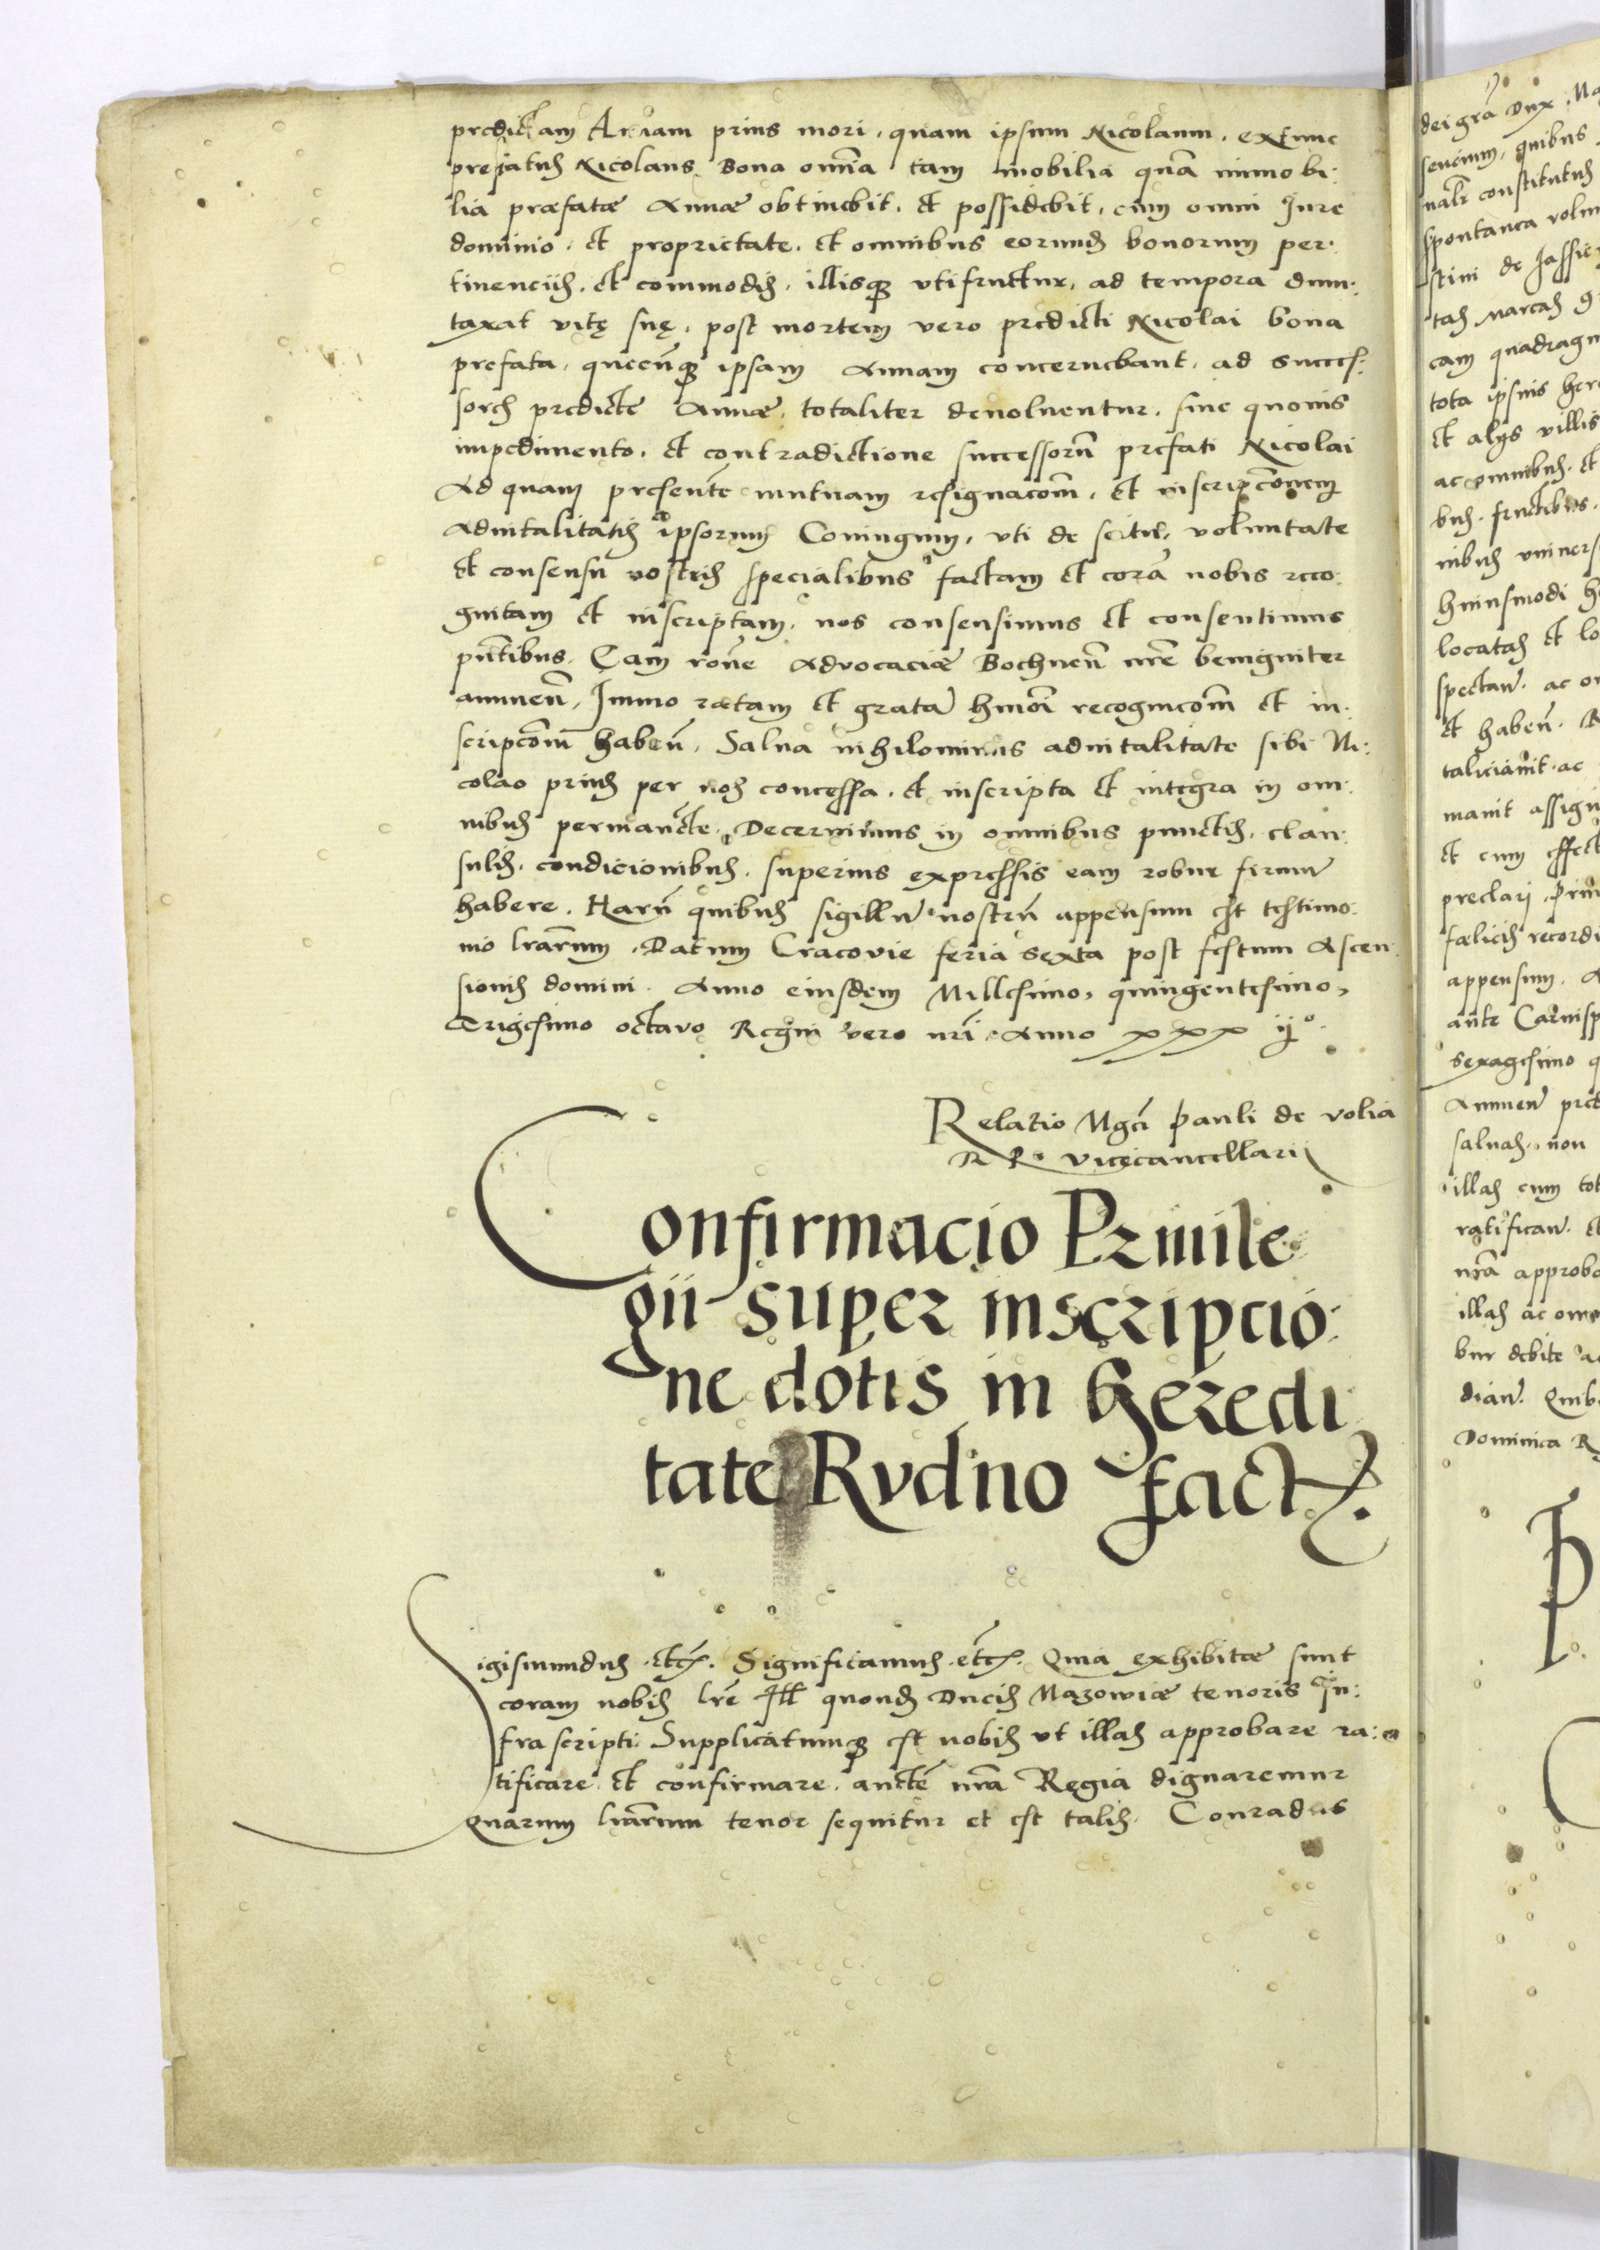 predictam Annam prius mori, quam ipsum Nicolaum, extunc
prefatus Nicolaus Bona omĩa tam mobilia quã immobi:
lia præfatæ Annæ obtinebit, et possidebit, cum omni Jure
dominio, et proprietate, et omnibus eorund bonorum per:
tinenciis, et commodis, illisq3 utifruetur, ad tempora dum:
taxat vitę suę, post mortem vero predicti Nicolai bona
prefata, quecũq3 ipsam Annam concernebant, ad succes:
sores predicte Annæ, totaliter devoluentur, sine quouis
impedimento, et contradictione successorũ prefati Nicolai
Ad quam presentẽ mutuam resignacoñ, et inscripcõnem
aduitalitatis ipsorum Coniugum, uti de scitu, voluntate
et consensu nostris specialibus factam et corã nobis reco:
gnitam et inscriptam, nos consensimus et consentimus
pñtibus. Eam roñe Advocaciæ Bochneñ nrẽ benigniter
annueñ, Immo ratam et gratã hmõi recognicoñ et in:
scripcoñ habeñ, Salua nihilominus aduitalitate sibi Ni:
colao prius per nos concessa, et inscripta et integra in om:
nibus permanẽte, Decernimus in omnibus punctis, clau:
sulis, condicionibus, superius expressis eam robur firmũ
habere. Harũ quibus sigillũ nostrũ appensum est testimo:
nio lrarum. Datum Cracovie feria sexta post festum Ascen
sionis domini. Anno eiusdem Millesimo, quingentesimo,
Trigesimo octavo Regni vero nri Anno xxx ijº.
Relatio Mgci Pauli de volia
R P. vicecancellarij
Confirmacio Priuile
gii super inscripcio:
ne dotis in heredi
tate Rvdno fact.
Sigismundus etc. Significamus etc. Quia exhibitæ sunt
coram nobis lrẽ Ill quond Ducis Mazowiæ tenoris In:
fra scripti. Supplicatumq3 est nobis ut illas approbare ra:
tificare et confirmare, auctẽ nrã Regia dignaremur
Quarum lrarum tenor sequitur et est talis. Conradus
dei grã Dux
quibus
constitutus
spontanea
stini de
tas Marcas
eam
tota ipsius
et alijs villis
ac omnibus, et
bus, fructibus,
huiusmodi
locatas et
ac
et habeñ.
ac
et cum
preclari
felicis
appensum.
ante
sexagesimo
saluas, non
illas cum
ratifican.
nrã
illas ac
debite
dian.
Dominica